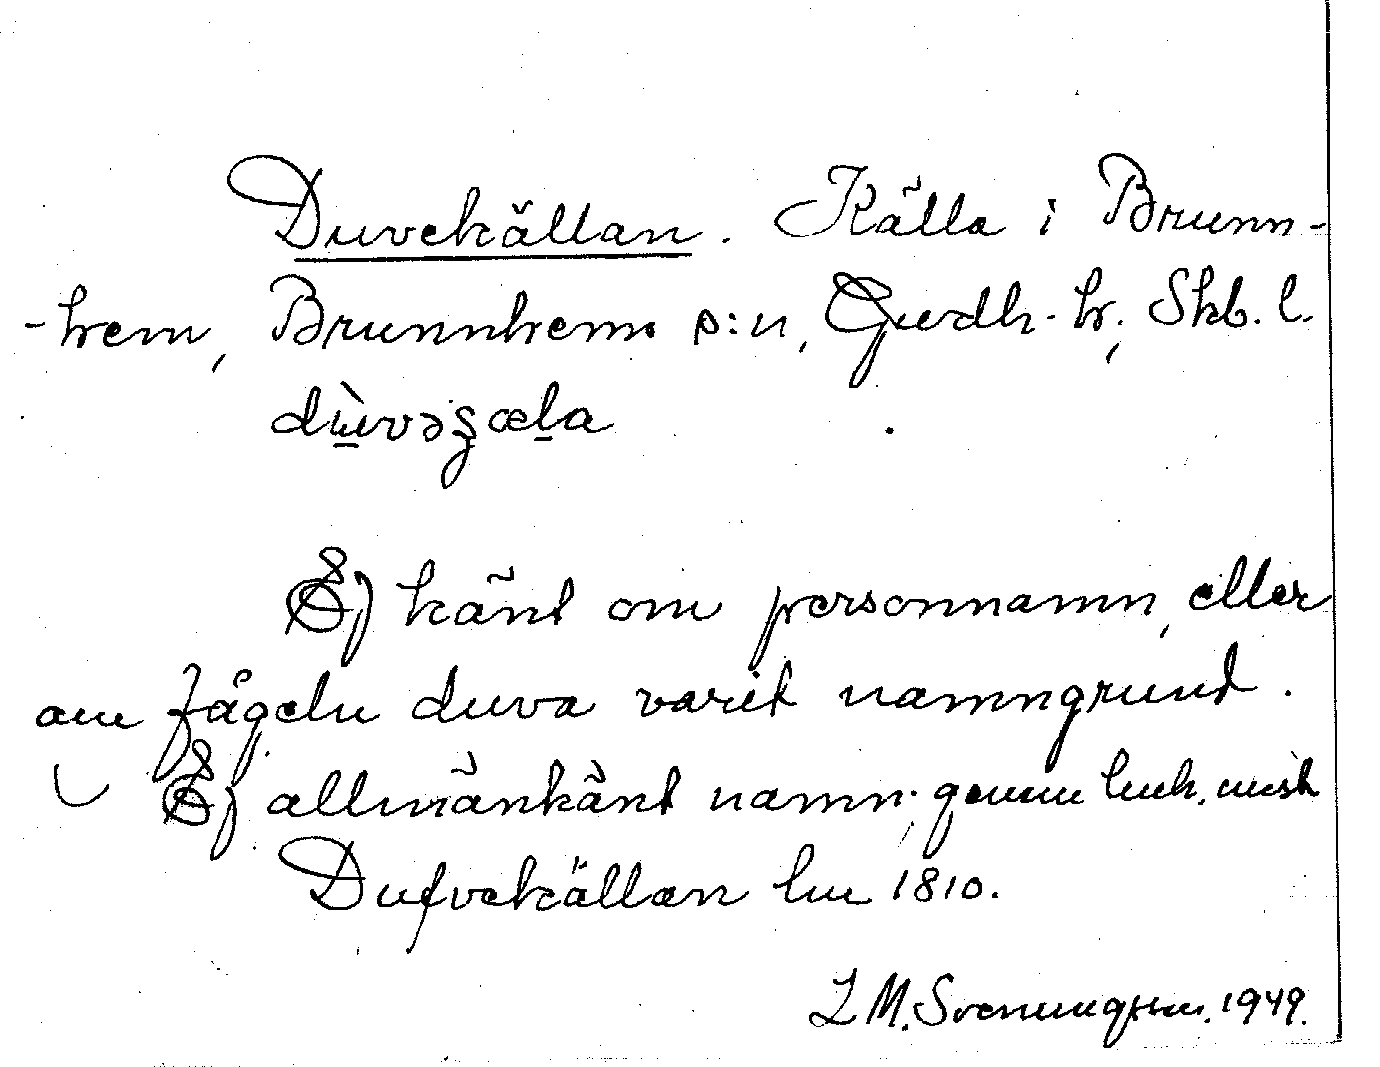 Duvekällan. Källa i Brunn-
-hem, Brunnhems s:n, Gudh. hr, Skb. l.
dùvəʂæla
Ej känt om personnamn, eller
om fågeln duva varit namngrund.
Ej allmänkänt namn; genom
Dufvekällan lm 1810.
L M. Svenungsson. 1949.